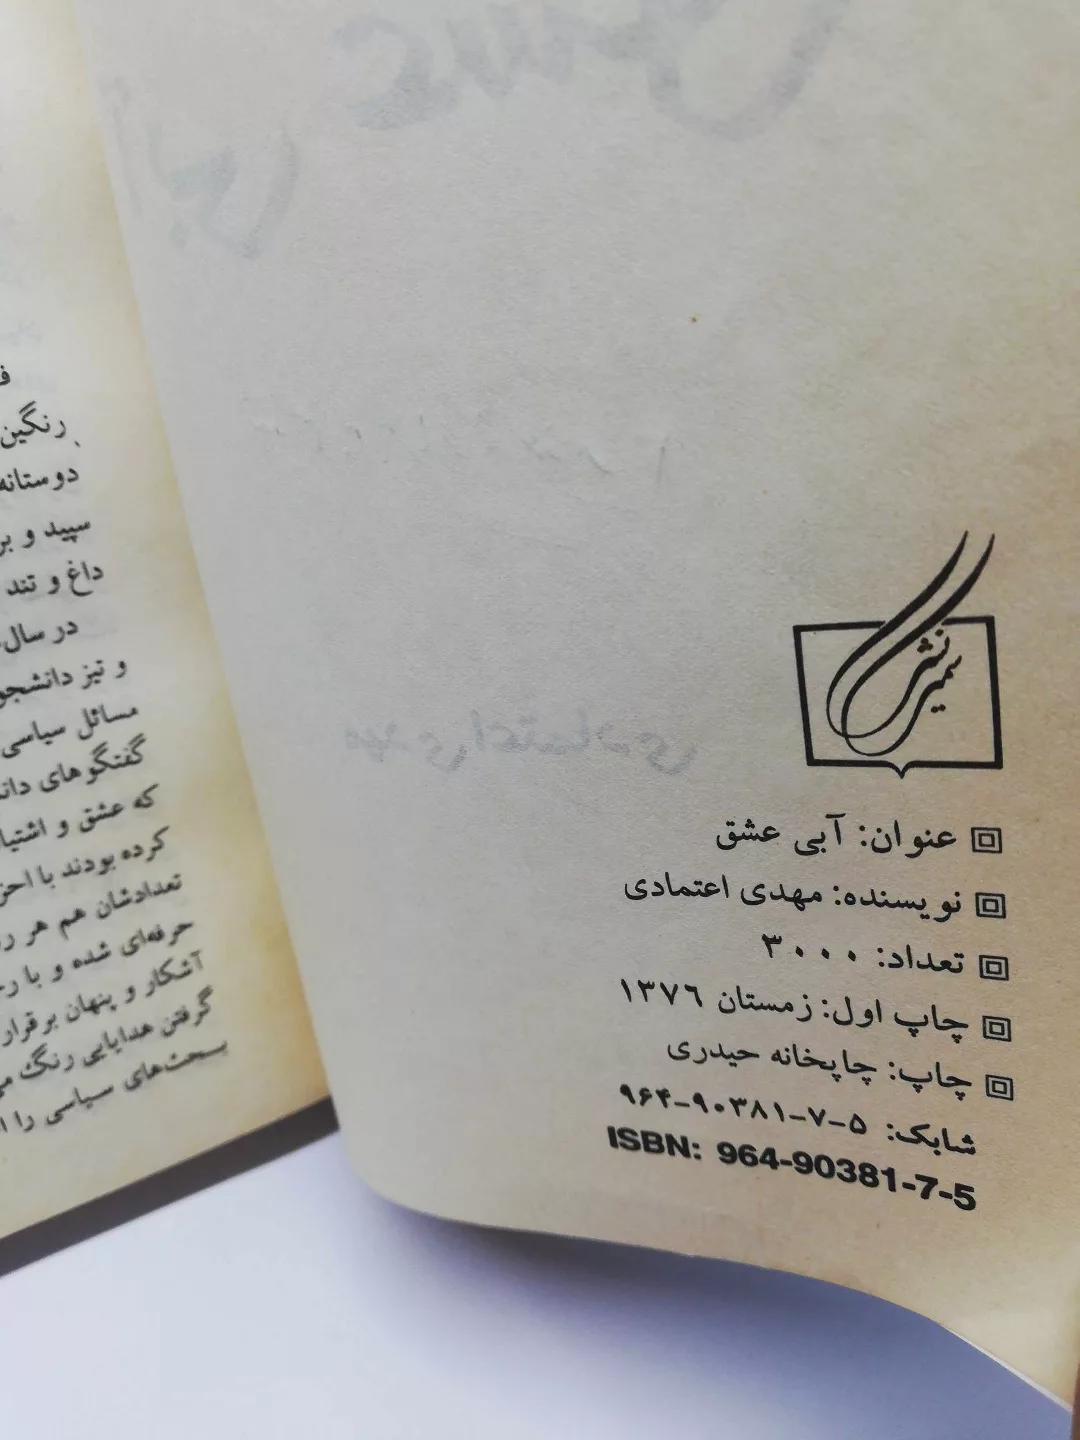 نشر
سمیر
عنوان: آبی عشق
نویسنده: مهدی اعتمادی
تعداد: ۳۰۰۰
چاپ اول: زمستان ۱۳۷۶
چاپ: چاپخانه حیدری
شابک: ۵-۷-۹۰۳۸۱-۹۶۴
ISBN: 964-90381-7-5
رنگین
دوستانه
سپید و بر
داغ و تند
در سال
و نیز دانشجو
مسائل سیاسی
گفتگوهای دان
که عشق و اشتیا
کرده بودند با احز
تعدادشان هم هر ر
حرفه‌ای شده و با ر
آشکار و پنهان برقرار
گرفتن هدایایی رنگ
بحث‌های سیاسی را